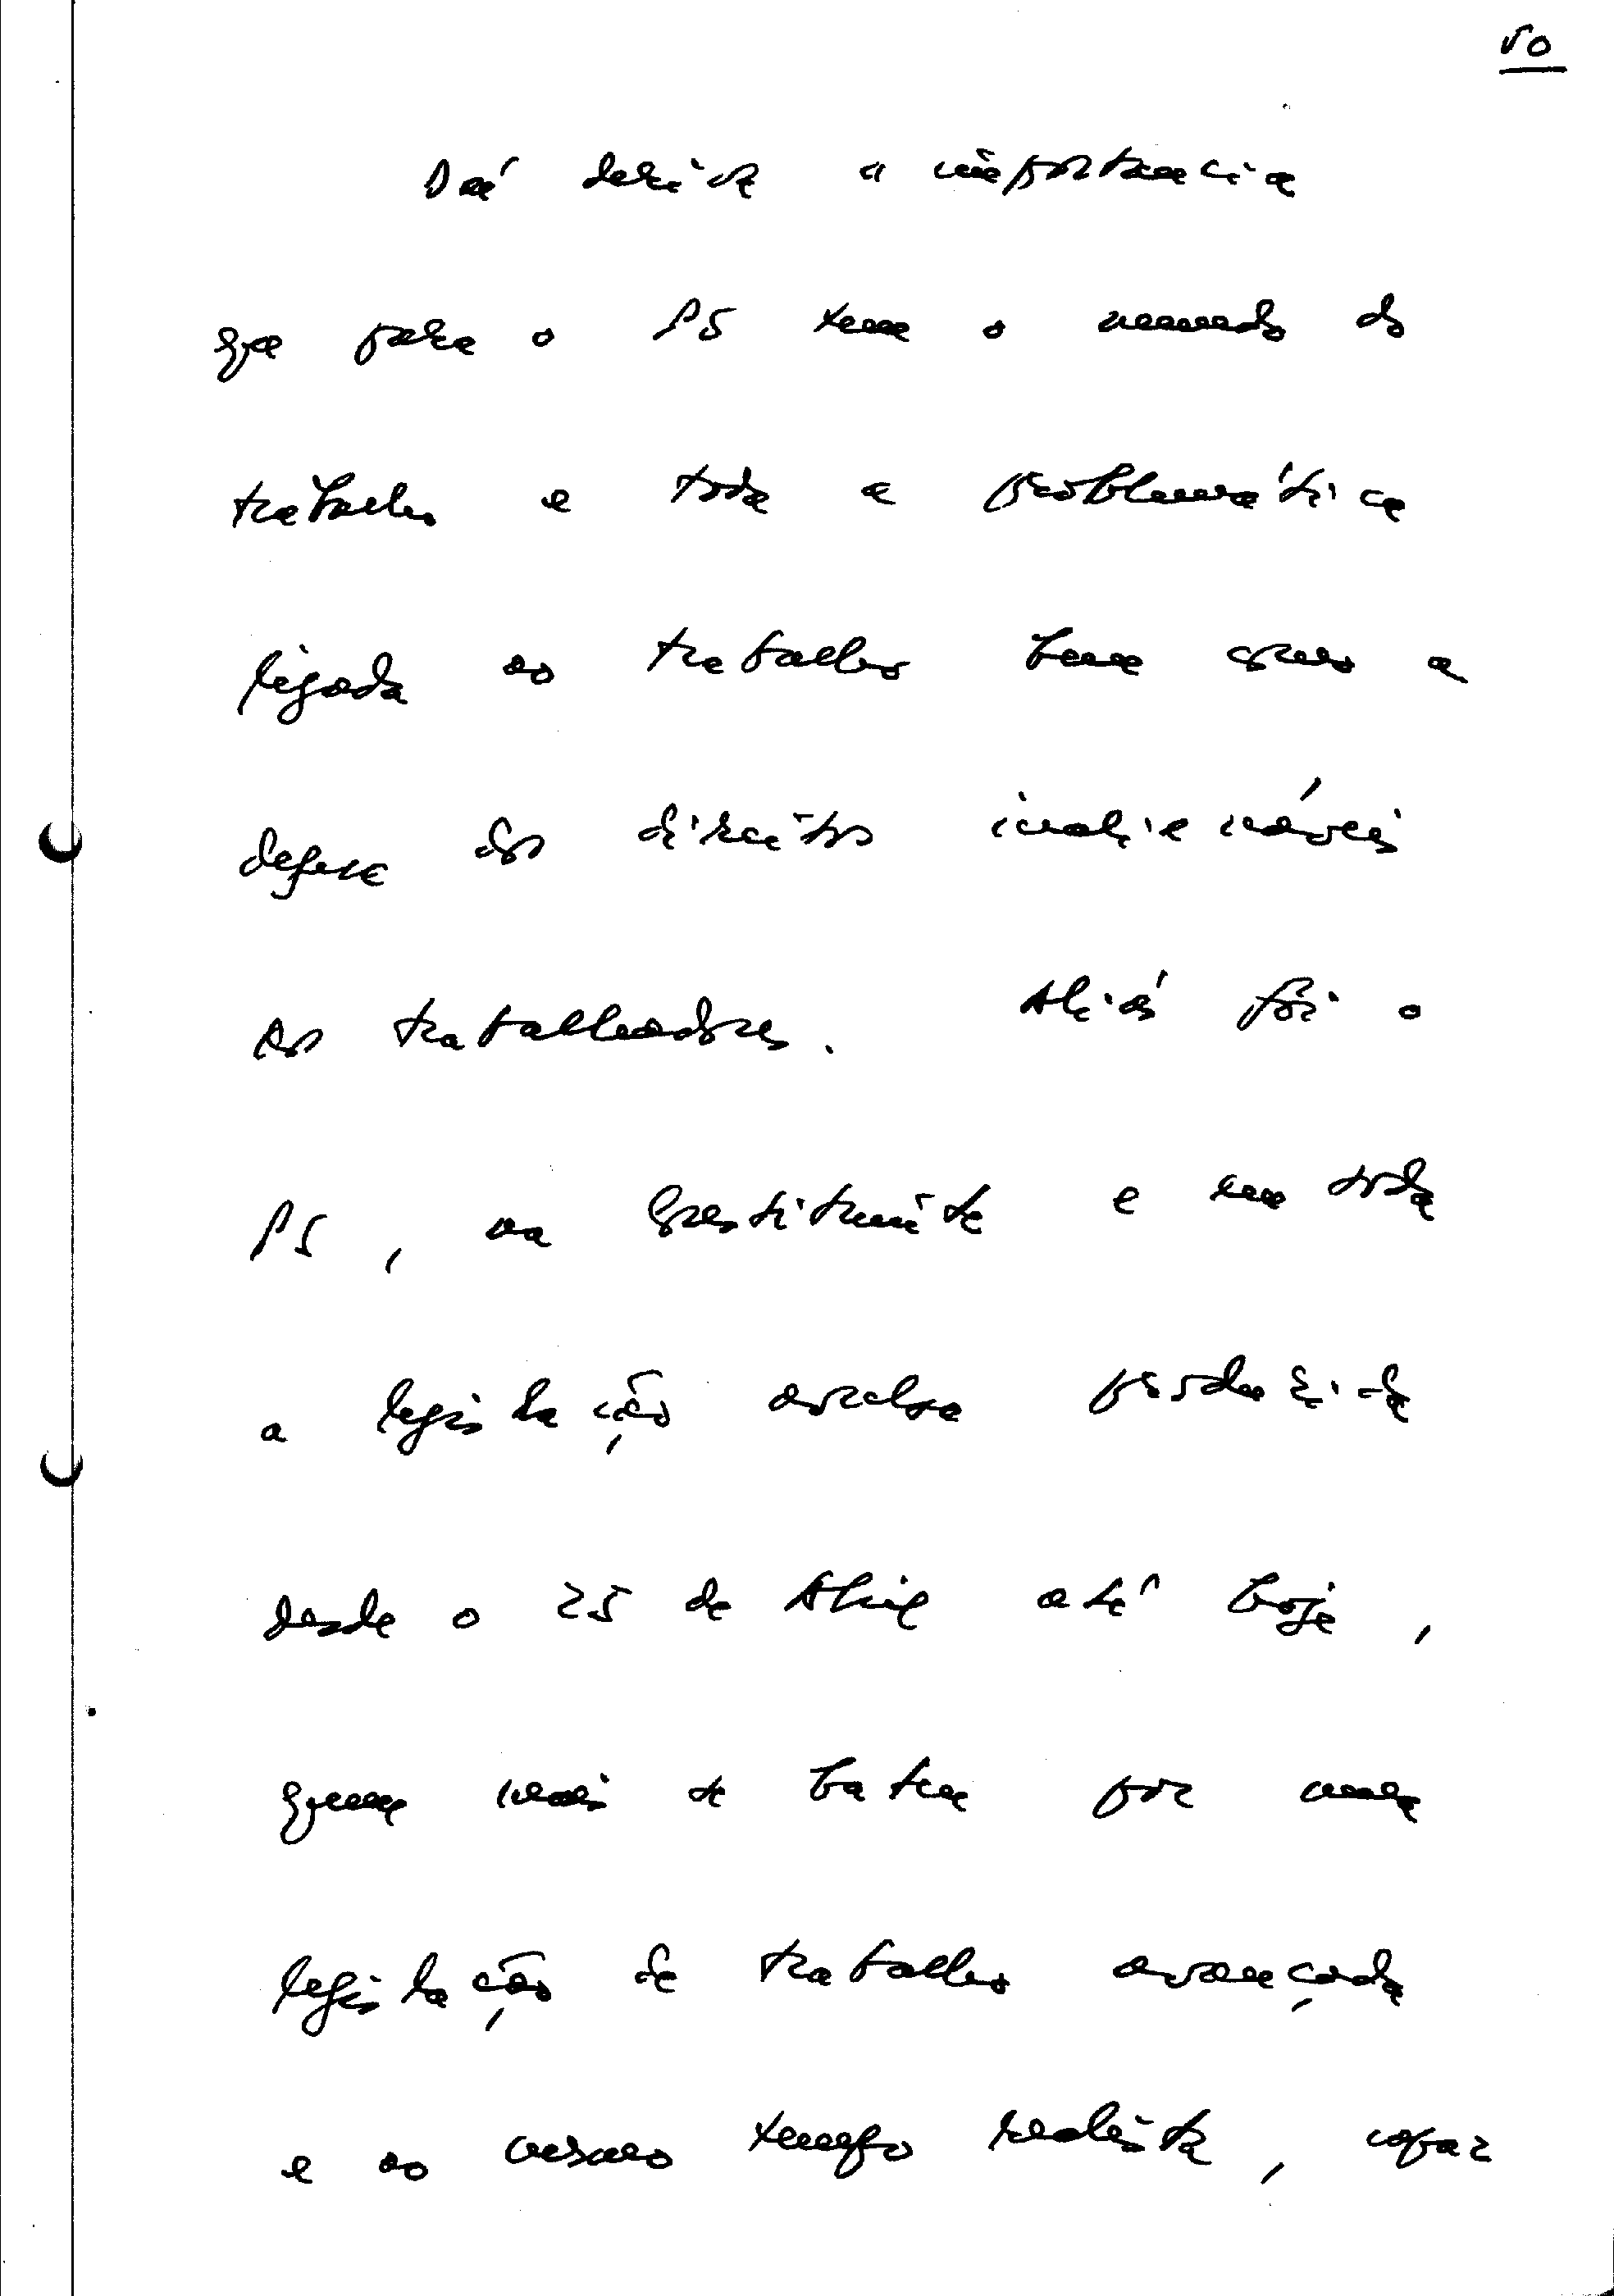 50
Daí deriva a importancia
que para o PS tem o mundo do
trabalho e toda a problemática
ligada ao trabalho bem como a
defesa dos direitos inalienáveis
dos trabalhadores. Aliás foi o
PS, na Constituinte e em toda
a legislação avulsa produzida
desde o 25 de Abril até hoje,
quem mais se bateu por uma
legislação de trabalho avançada
e ao mesmo tempo realista, capaz